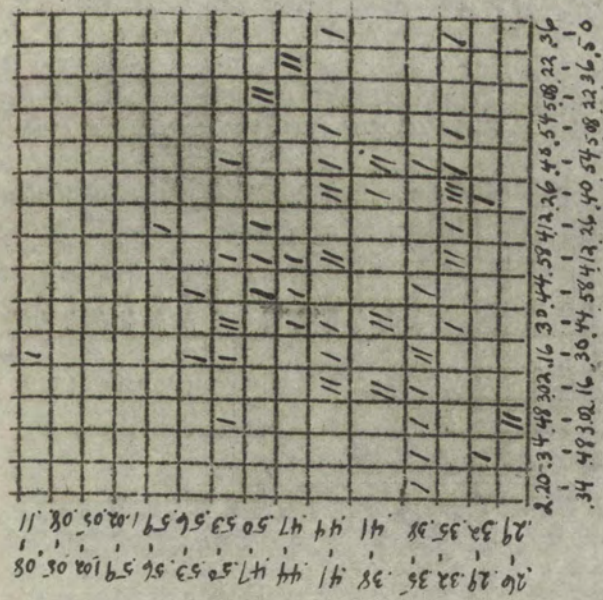 2.20 - .34 .48 3.02 .16 .30 .44 .58 4.12 .26 .40 .54 5.08 .22 .36
.34 .48 3.02 .16 .30 .44 .58 4.12 .26 .40 .54 5.08 .22 .36 .50
.29 .32 .35 .38 .41 .44 .47 .50 .53 .56 .59 1.02 .05 .08 .11
.26 .29 .32 .35 .38 .41 .44 .47 .50 .53 .56 .59 1.02 .05 .08